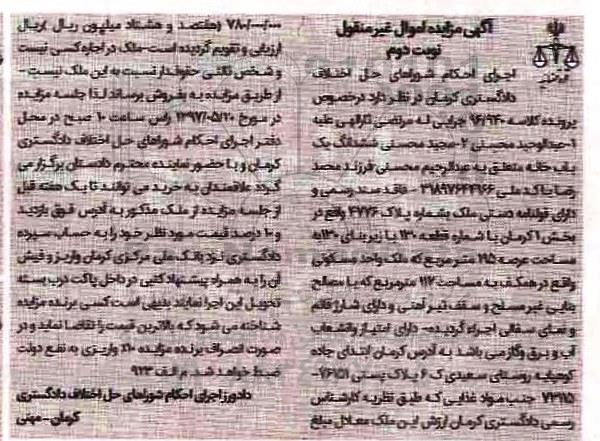 آگهی مزایده اموال غیر منقول
نوبت دوم
اجرای احکام شوراهای حل اختلاف
دادگستری کرمان در نظر دارد در خصوص
پرونده کلاسه ۹۴/۹۴۰ اجرایی له مرتضی ثاراللهی علیه
۱-عبدالوحید محسنی ۲-مجید محسنی ششدانگ یک
باب خانه متعلق به عبدالرحیم محسنی فرزند محمد
رضا با کد ملی فاقد سند رسمی و
دارای قولنامه دستی ملک بشماره پلاک ۴۷۷۶ واقع در
بخش ۱ کرمان با شماره قطعه ۱۳۰ با زیربنای ۱۳۰ به
مساحت عرصه ۱۹۵ متر مربع که ملک واحد مسکونی
واقع در همکف به مساحت ۱۱۲ مترمربع که با مصالح
بنایی غیر مسلح و سقف تیر آهنی و دارای شناژ قائم
و نمای سفالی اجراء گردیده- دارای امتیاز وانشعاب
آب و برق وگاز می باشد به آدرس کرمان ابتدای جاده
کوهپایه روستای سعیدی ک ۶ پلاک پستی ۷۶۱۵۱-
۷۴۳۱۱۵ جنب مواد غذایی که طبق نظریه کارشناس
رسمی دادگستری کرمان ارزش این ملک معادل مبلغ
۷۸۰/۰۰۰/۰۰۰ (هفتصد و هشتاد میلیون ریال )ریال
ارزیابی و تقویم گردیده است-ملک در اجاره کسی نیست
و شخص ثالثی حقوقدار نسبت به این ملک نیست –
از طریق مزایده به فروش برساند لذا جلسه مزایده
در مورخ ۱۳۹۷/۰۵/۲۰ راس ساعت ۱۰ صبح در محل
دفتر اجرای احکام شوراهای حل اختلاف دادگستری
کرمان و با حضور نماینده محترم دادستان برگزار می
گردد علاقمندان به خرید می توانند تا یک هفته قبل
از جلسه مزایده از ملک مذکور به آدرس فوق بازدید
و ۱۰ درصد قیمت مورد نظر خود را به حساب سپرده
دادگستری نزد بانک ملی مرکزی کرمان واریز و فیش
آن را به همراه پیشنهاد کتبی در داخل پاکت درب بسته
تحویل این اجرا نمایند بدیهی است کسی برنده مزایده
شناخته می شود که بالاترین قیمت را تقاضا نماید و در
صورت انصراف برنده مزایده ۱۰٪ واریزی به نفع دولت
ضبط خواهد شد. م الف ۹۲۳
دادورز اجرای احکام شوراهای حل اختلاف دادگستری
کرمان – مهنی